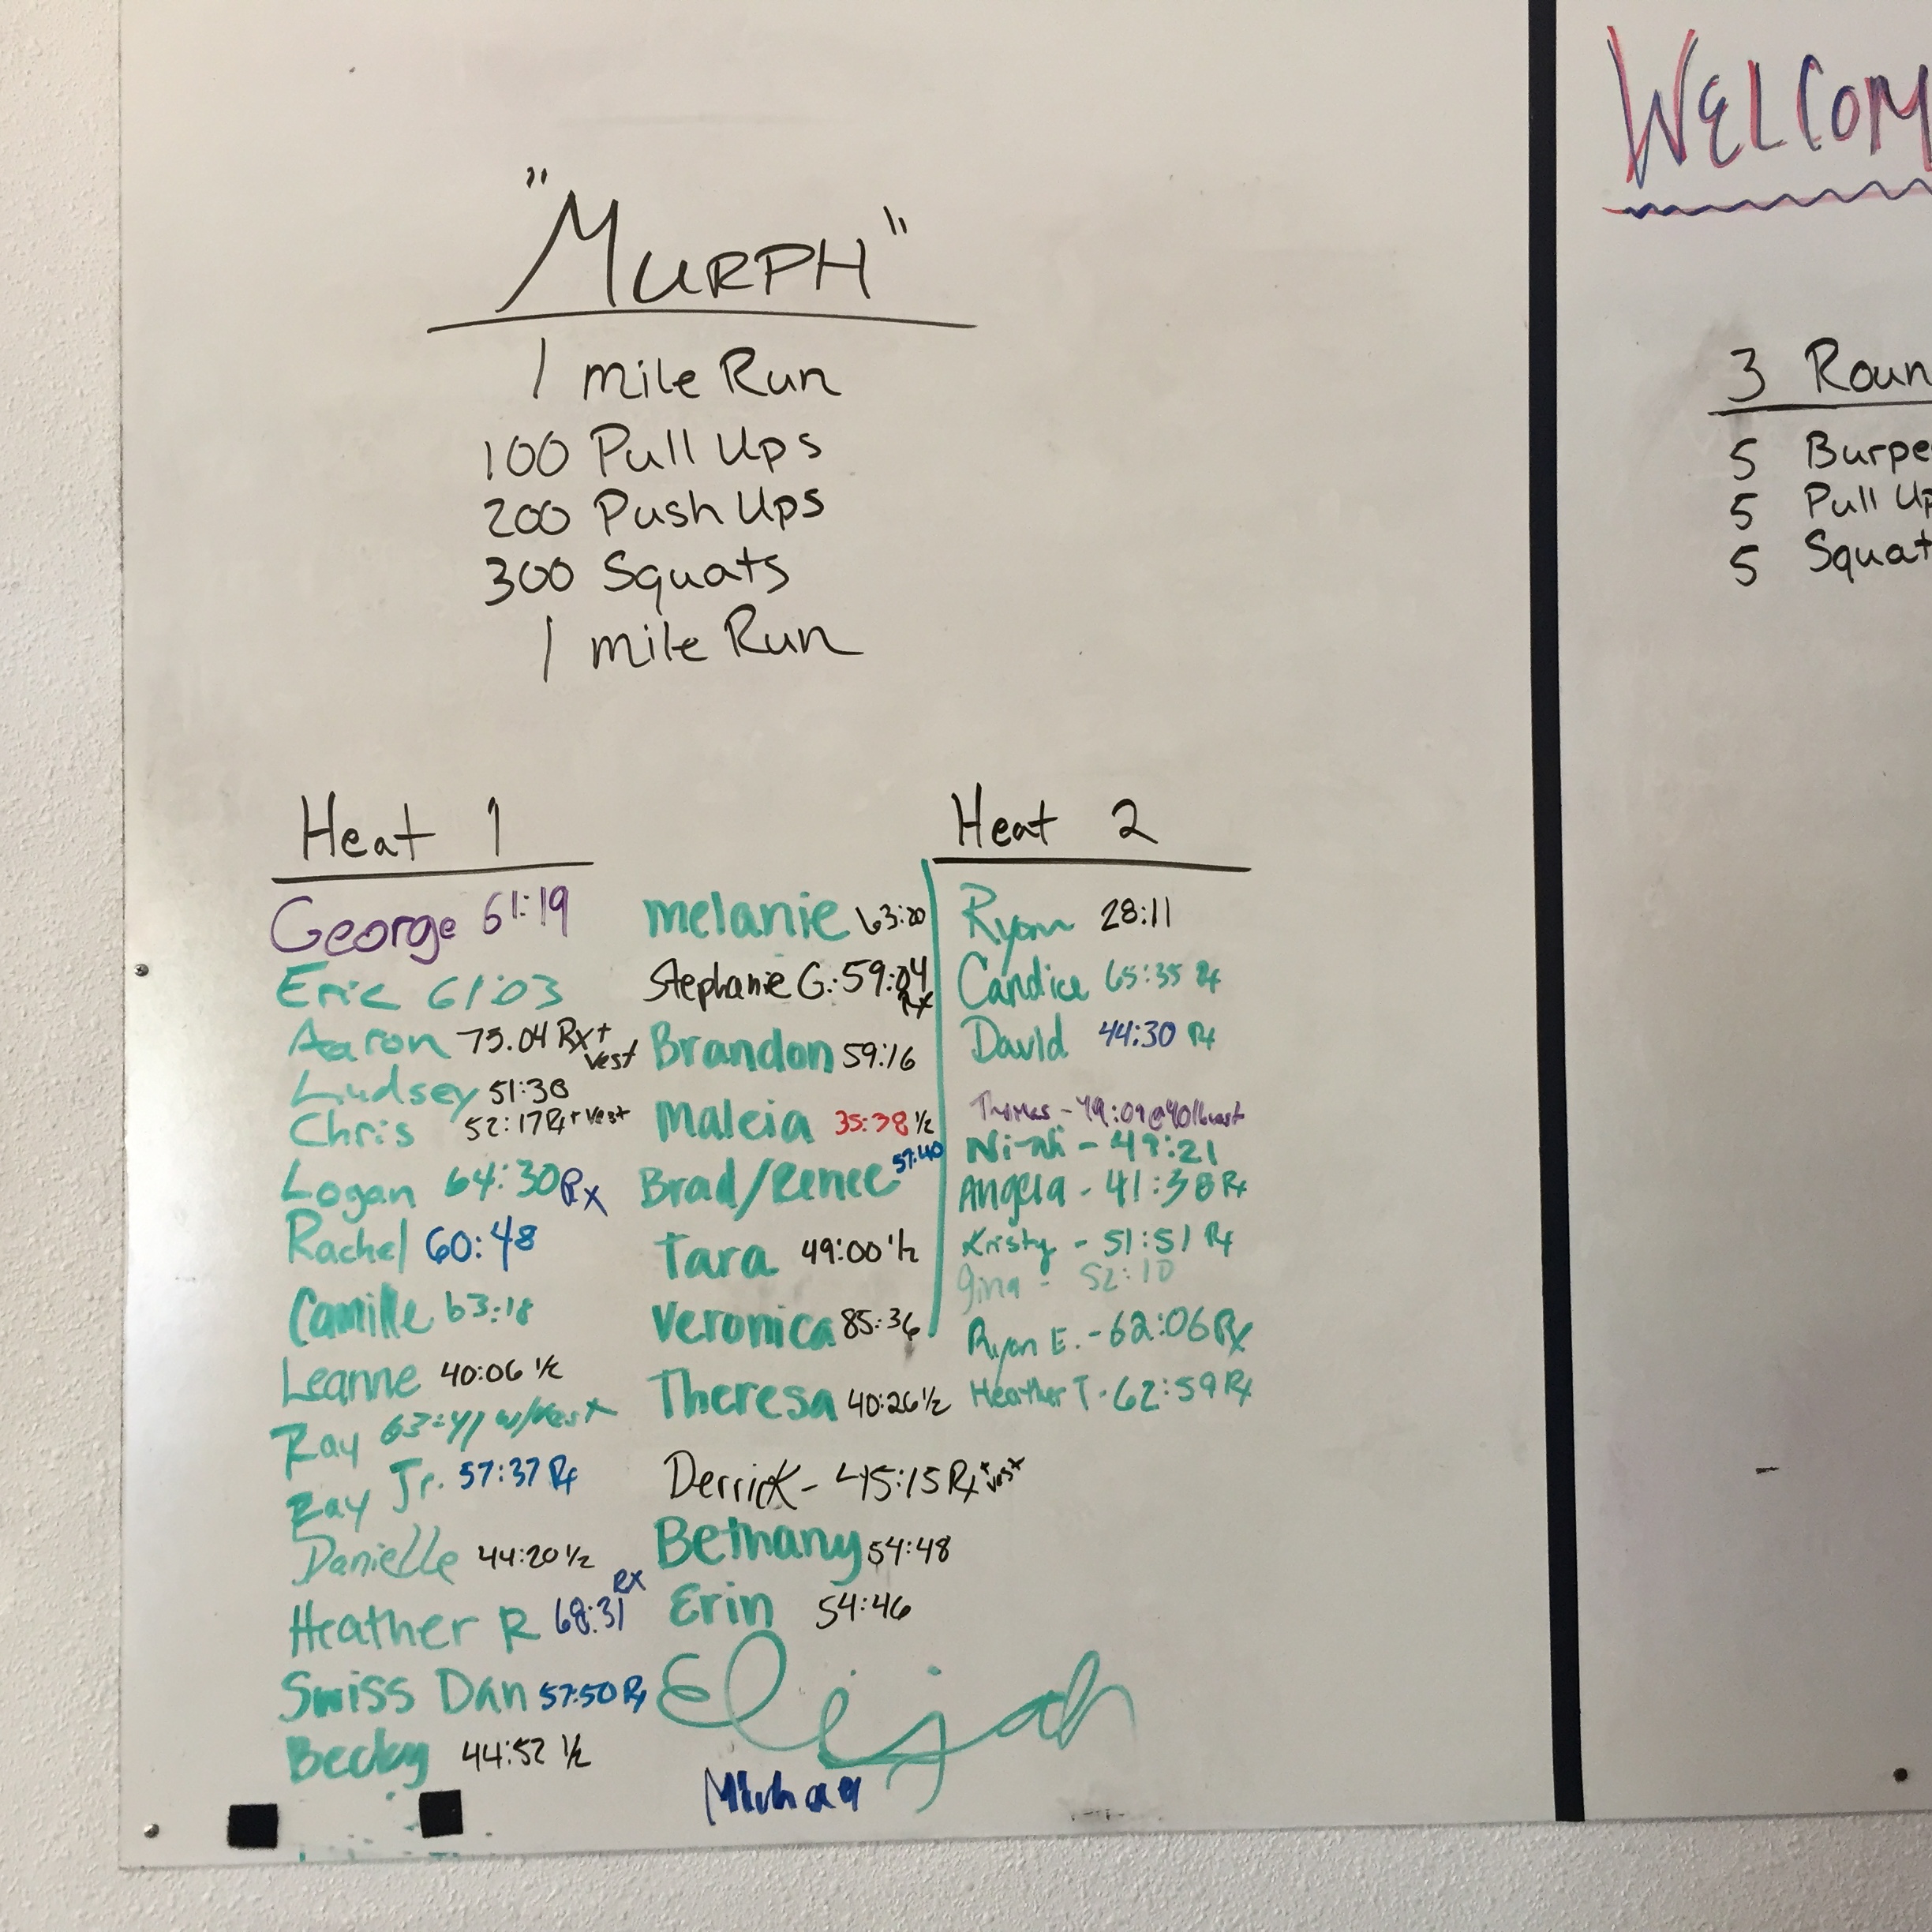 "MURPH"
1 mile Run
100 Pull Ups
200 Push Ups
300 Squats
1 mile Run
Heat 1
George 61:19
Eric 61:03
Aaron 75.04 Rx+ vest
Lindsey 51:38
Chris 52:17 Rx+ vest
Logan 64:30 Rx
Rachel 60:48
Camille 63:18
Leanne 40:06 1/2
Ray w/vest
Ray Jr. 57:37 Rx
Danielle 44:20 1/2
Heather R 68:31 RX
Swiss Dan 57:50 Rx
Becky 44:52 1/2
melanie 63:20
Stephanie G. 59:04 Rx
Brandon 59:16
Maleia 35:38 1/2
Brad/Renee 57:40
Tara 49:00 1/2
Veronica 85:36
Theresa 40:26 1/2
Derrick - 45:15 Rx + vest
Bethany 54:48
Erin 54:46
Elijah
Heat 2
Ryan 28:11
Candice 65:35 Rx
David 44:30 Rx
Thomas - 49:09 @40lbvest
- 49:21
Angela - 41:38 Rx
Kristy - 51:51 Rx
gina - 52:10
Ryan E. - 62:06 Rx
Heather T - 62:59 Rx
WELCOM
3 Roun
5 Burpe
5 Pull Up
5 Squat